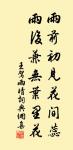 雨前初見花間蕊
雨後兼無葉裏花
王駕雨晴詞與偶集